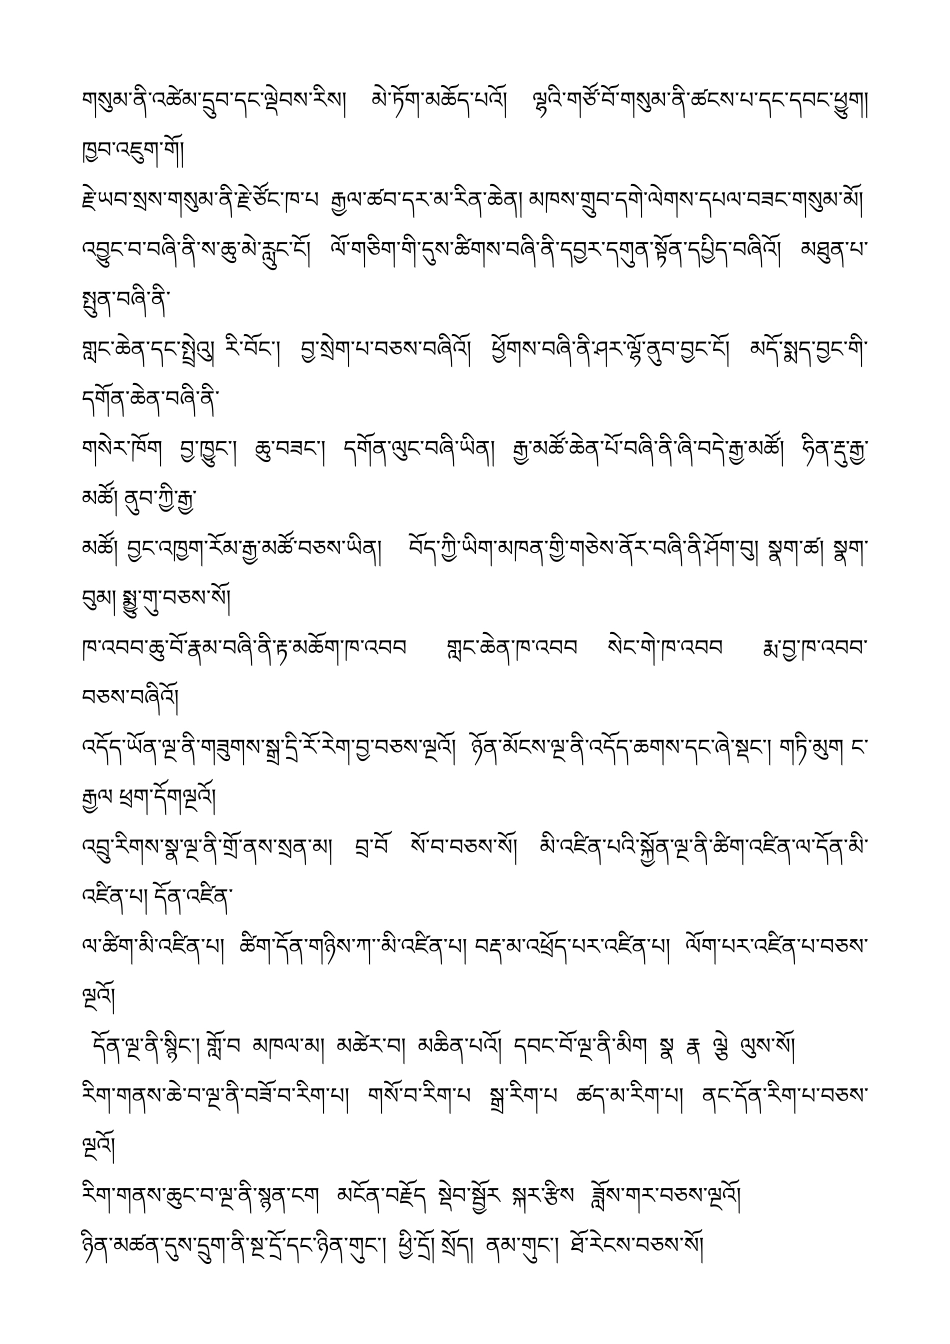 གསུམ་ནི་འཚེམ་དྲུབ་དང་ལྡེབས་རིས།  མེ་ཏོག་མཆོད་པའོ།  ལྷའི་གཙོ་བོ་གསུམ་ནི་ཚངས་པ་དང་དབང་ཕྱུག།
ཁྱབ་འཇུག་གོ།།
རྗེ་ཡབ་སྲས་གསུམ་ནི་རྗེ་ཙོང་ཁ་པ  རྒྱལ་ཚབ་དར་མ་རིན་ཆེན། མཁས་གྲུབ་དགེ་ལེགས་དཔལ་བཟང་གསུམ་མོ།
འབྱུང་བ་བཞི་ནི་ས་ཆུ་མེ་རླུང་ངོ།  ལོ་གཅིག་གི་དུས་ཚིགས་བཞི་ནི་དབྱར་དགུན་སྟོན་དཔྱིད་བཞིའོ།  མཐུན་པ་
སྤུན་བཞི་ནི་
གླང་ཆེན་དང་སྤྲེའུ།  རི་བོང་།  བྱ་སྲེག་པ་བཅས་བཞིའོ།  ཕྱོགས་བཞི་ནི་ཤར་ལྷོ་ནུབ་བྱང་ངོ།  མདོ་སྨད་བྱང་གི་
དགོན་ཆེན་བཞི་ནི་
གསེར་ཁོག  བྱ་ཁྱུང་།  ཆུ་བཟང་།  དགོན་ལུང་བཞི་ཡིན།  རྒྱ་མཚོ་ཆེན་པོ་བཞི་ནི་ཞི་བདེ་རྒྱ་མཚོ།  ཧིན་རྡུ་རྒྱ་
མཚོ། ནུབ་ཀྱི་རྒྱ་
མཚོ།  བྱང་འཁྱག་རོམ་རྒྱ་མཚོ་བཅས་ཡིན།  བོད་ཀྱི་ཡིག་མཁན་གྱི་གཅེས་ནོར་བཞི་ནི་ཤོག་བུ།  སྣག་ཚ།  སྣག་
བུམ། སྨྱུ་གུ་བཅས་སོ།
ཁ་འབབ་ཆུ་བོ་རྣམ་བཞི་ནི་རྟ་མཆོག་ཁ་འབབ  གླང་ཆེན་ཁ་འབབ  སེང་གེ་ཁ་འབབ  རྨ་བྱ་ཁ་འབབ་
བཅས་བཞིའོ།
འདོད་ཡོན་ལྔ་ནི་གཟུགས་སྒྲ་དྲི་རོ་རེག་བྱ་བཅས་ལྔའོ།  ཉོན་མོངས་ལྔ་ནི་འདོད་ཆགས་དང་ཞེ་སྡང་། གཏི་མུག ང་
རྒྱལ ཕྲག་དོགལྔའོ།
འབྲུ་རིགས་སྣ་ལྔ་ནི་གྲོ་ནས་སྲན་མ།  བྲ་བོ  སོ་བ་བཅས་སོ།  མི་འཛིན་པའི་སྐྱོན་ལྔ་ནི་ཚིག་འཛིན་ལ་དོན་མི་
འཛིན་པ། དོན་འཛིན་
ལ་ཚིག་མི་འཛིན་པ།  ཚིག་དོན་གཉིས་ཀ་་མི་འཛིན་པ། བརྡ་མ་འཕྲོད་པར་འཛིན་པ།  ལོག་པར་འཛིན་པ་བཅས་
ལྔའོ།
དོན་ལྔ་ནི་སྙིང་། གློ་བ  མཁལ་མ།  མཚེར་བ།  མཆིན་པའོ།  དབང་པོ་ལྔ་ནི་མིག  སྣ  རྣ  ལྕེ  ལུས་སོ།
རིག་གནས་ཆེ་བ་ལྔ་ནི་བཟོ་བ་རིག་པ།  གསོ་བ་རིག་པ  སྒྲ་རིག་པ  ཚད་མ་རིག་པ།  ནང་དོན་རིག་པ་བཅས་
ལྔའོ།
རིག་གནས་ཆུང་བ་ལྔ་ནི་སྙན་ངག  མངོན་བརྗོད  སྡེབ་སྦྱོར  སྐར་རྩིས  ཟློས་གར་བཅས་ལྔའོ།
ཉིན་མཚན་དུས་དྲུག་ནི་སྔ་དྲོ་དང་ཉིན་གུང་།  ཕྱི་དྲོ། སྲོད།  ནམ་གུང་།  ཐོ་རེངས་བཅས་སོ།